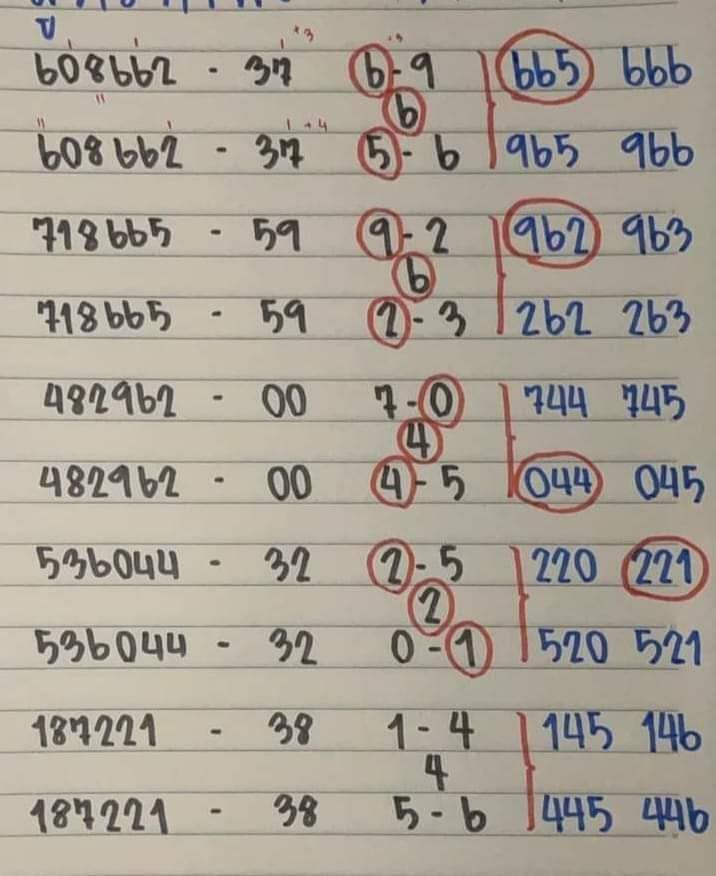 608662 - 37 6-9 665 666
6
608662 - 37 5-6 965 966
718665 - 59 9-2 962 963
6
718665 - 59 2-3 262 263
482962 - 00 7-0 744 745
4
482962 - 00 4-5 044 045
536044 - 32 2-5 220 221
2
536044 - 32 0-1 520 521
187221 - 38 1-4 145 146
4
187221 - 38 5-6 445 446